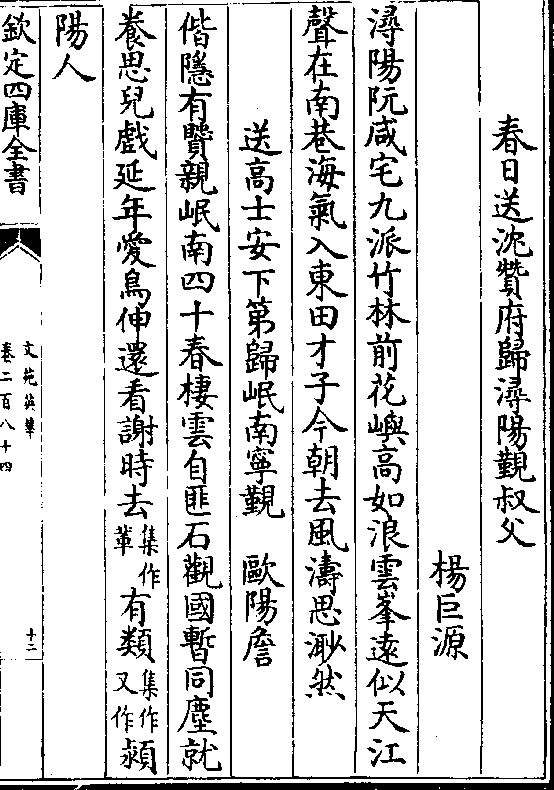 春日送沈贊府歸潯陽覲叔父
楊巨源
潯陽阮咸宅九派竹林前花嶼高如浪雲峯遠似天江
聲在南巷海氣入東田才子今朝去風濤思渺然
送高士安下第歸岷南寧覲　歐陽詹
偕隱有賢親岷南四十春棲雲自匪石觀國暫同塵就
養思兒戲延年愛鳥伸還看謝時去集作輩有類集作又作潁
陽人
欽定四庫全書
文苑英華
卷二百八十四
十二